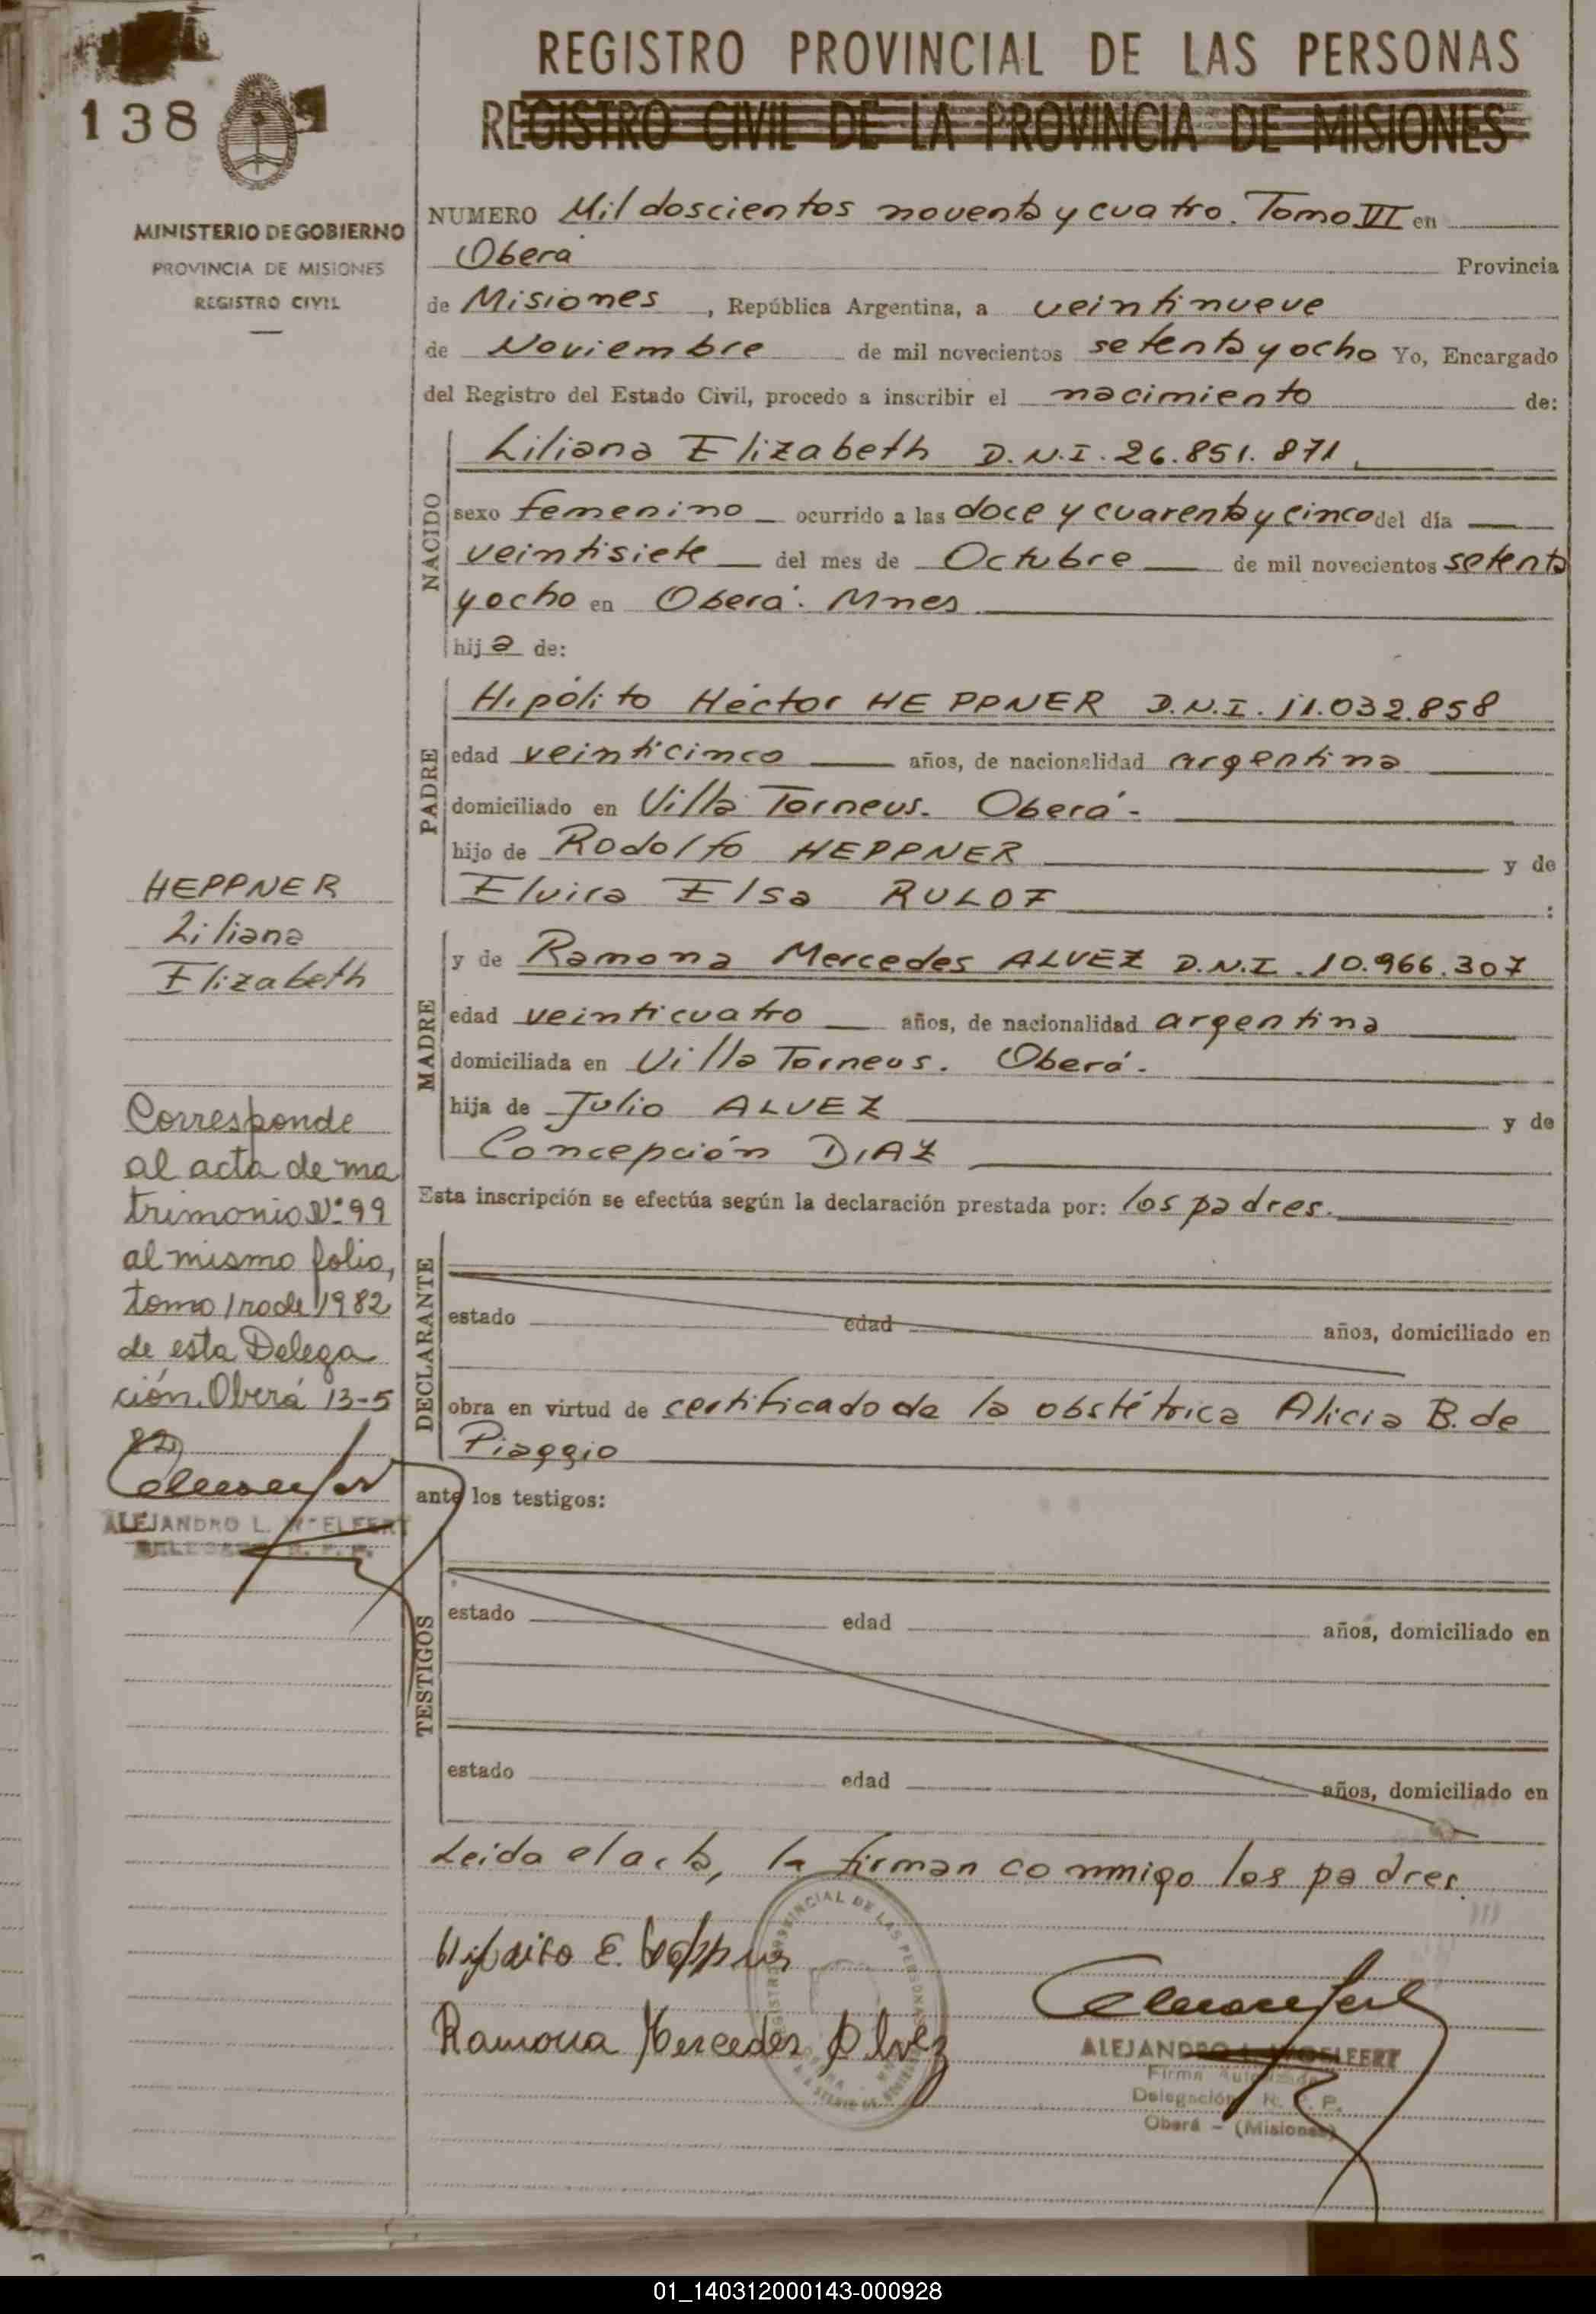 138
MINISTERIO DE GOBIERNO
PROVINCIA DE MISIONES
REGISTRO CIVIL
REGISTRO PROVINCIAL DE LAS PERSONAS
REGISTRO CIVIL DE LA PROVINCIA DE MISIONES
NUMERO Mil doscientos noventa y cuatro. Tomo VII en
Oberá Provincia
de Misiones, República Argentina, a veintinueve
de Noviembre de mil novecientos setenta y ocho Yo, Encargado
del Registro del Estado Civil, procedo a inscribir el nacimiento de:
NACIDO
Liliana Elizabeth D.N.I. 26.851.871
sexo femenino ocurrido a las doce y cuarenta y cinco del día
veintisiete del mes de Octubre de mil novecientos setenta
y ocho en Oberá. Mnes
hija de:
PADRE
Hipólito Héctor HEPPNER D.N.I. 11.032.858
edad veinticinco años, de nacionalidad argentina
domiciliado en Villa Torneus. Oberá.
hijo de Rodolfo HEPPNER y de
Elvira Elsa RULOF :
MADRE
y de Ramona Mercedes ALVEZ D.N.I. 10.966.307
edad veinticuatro años, de nacionalidad argentina
domiciliada en Villa Torneus. Oberá.
hija de Julio ALVEZ y de
Concepción DIAZ
Esta inscripción se efectúa según la declaración prestada por: los padres.
DECLARANTE
estado edad años, domiciliado en
obra en virtud de certificado de la obstétrica Alicia B. de
Piaggio
ante los testigos:
TESTIGOS
estado edad años, domiciliado en
estado edad años, domiciliado en
Leida el acta, la firman conmigo los padres.
Ramona Mercedes Alvez
ALEJANDRO L. WOELFERT
Firma Autorizada
Delegación R. P. P.
Oberá - (Misiones)
HEPPNER
Liliana
Elizabeth
Corresponde
al acta de ma
trimonio Nº 99
al mismo folio,
tomo 1ro de 1982
de esta Delega
ción. Oberá 13-5
82)
ALEJANDRO L. WOELFERT
01_140312000143-000928